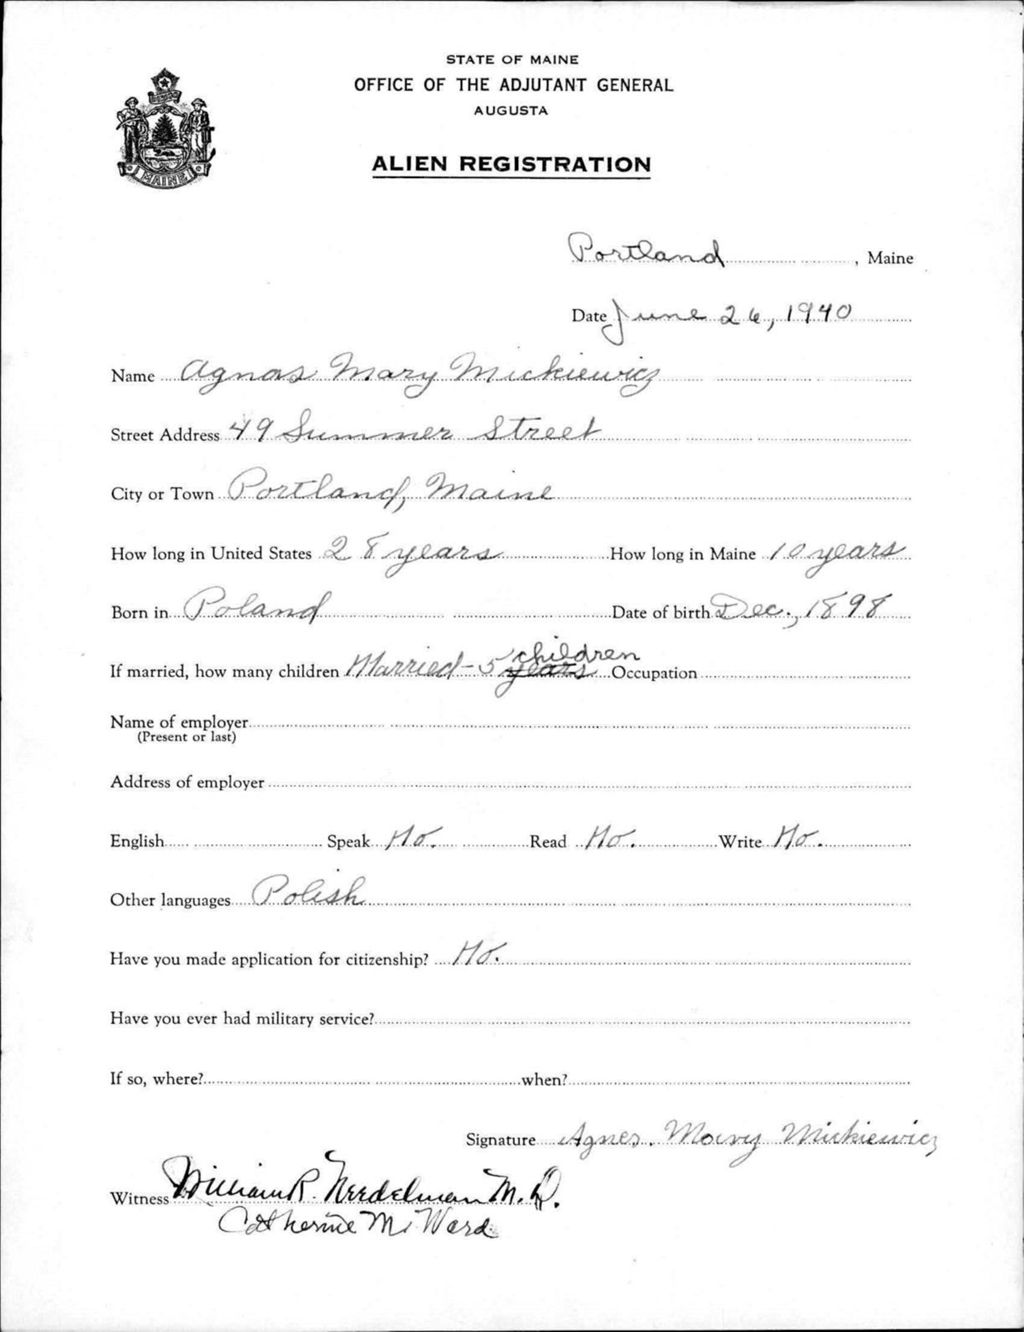 STATE OF MAINE
OFFICE OF THE ADJUTANT GENERAL
AUGUSTA
ALIEN REGISTRATION
MAINE
Portland, Maine
Date June 26, 1940
Name Agnas Mary Mickiewicz
Street Address 49 Summer Street
City or Town Portland, Maine
How long in United States 28 years How long in Maine 10 years
Born in Poland Date of birth Dec., 1898
If married, how many children Married - 5 years children Occupation
Name of employer
(Present or last)
Address of employer
English Speak No. Read No. Write No.
Other languages Polish
Have you made application for citizenship? No.
Have you ever had military service?
If so, where? when?
Signature Agnes. Mary Mickiewicz
Witness William R. Needelman M.D.
Catherine M. Ward